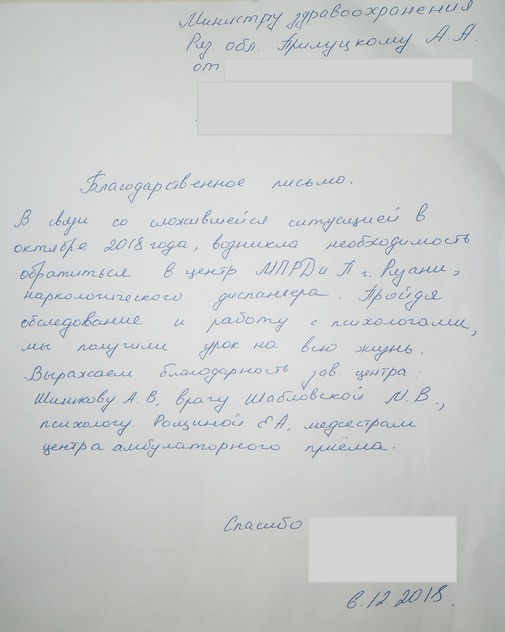 Министру здравоохранения
Ряз. обл. Прилуцкому А. А.
от
Благодарственное письмо.
В связи со сложившейся ситуацией в
октябре 2018 года, возникла необходимость
обратиться в центр МПРДи П г. Рязани,
наркологического диспансера. Пройдя
обследование и работу с психологами,
мы получили урок на всю жизнь.
Выражаем благодарность зав. центра:
Шишкову А. В, врачу Шабловской М. В.,
психологу Рощиной Е А, медсестрам
центра амбулаторного приёма.
Спасибо
6.12.2018.